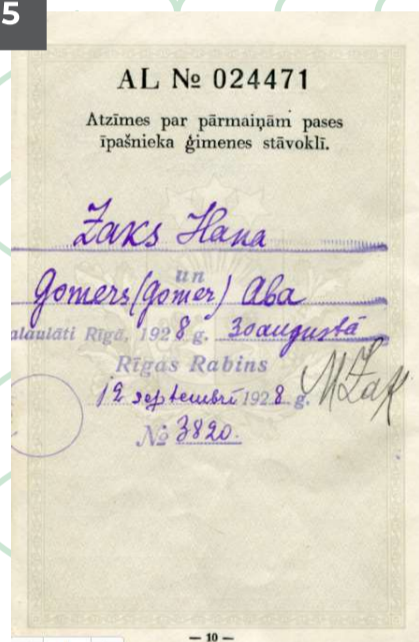 5
AL № 024471
Atzīmes par pārmaiņām pases
īpašnieka ģimenes stāvoklī.
Zaks Hana
un
Gomers (Gomer) Aba
alaulāti Rīgā, 1928 g. 30 augustā
Rīgas Rabins
12 septembrī 1928 g. MZak
№ 3820.
— 10 —